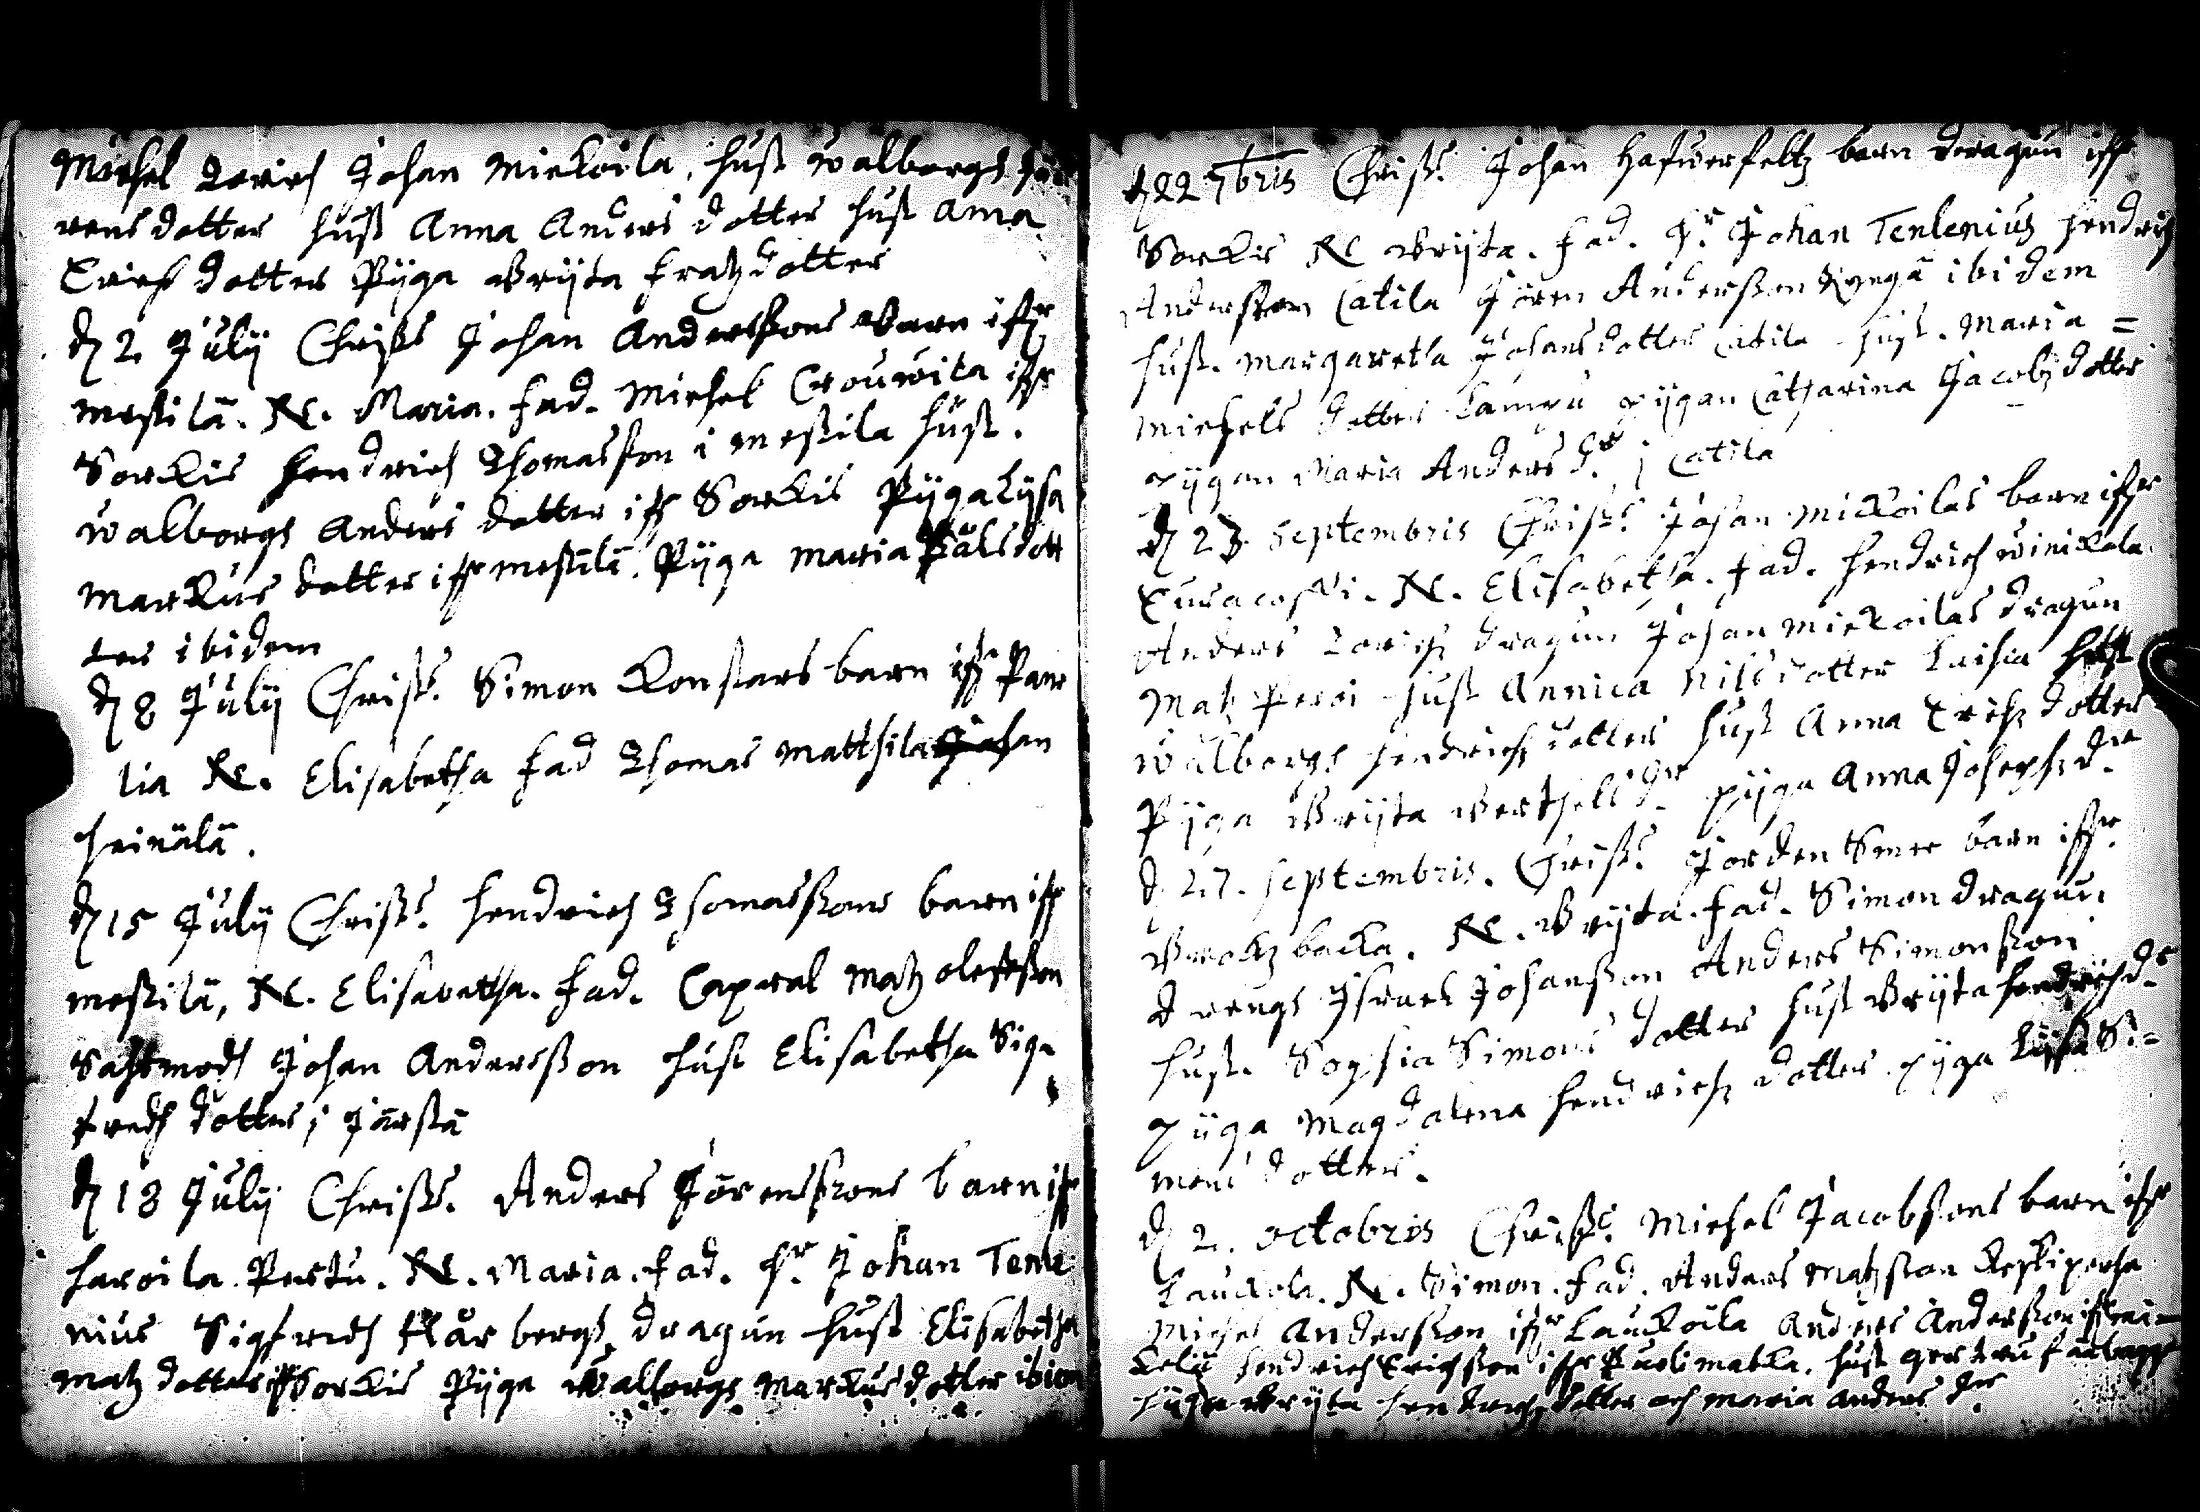 Michel Torick Johan Mickoila, hust Walborgs Jö
rens dotter hust Anna Anders dotter hust Anna
Erichs dotter Pijga Brijta Fratz dotter
d 2 Julij Christ. Johan Anderssons Barn ifr
Mestilä. N. Maria. fad. Michel Crouwila ifr
Sorkis Hendrich Thomasson i Mestila hust.
Walborgs Anders dotter ifr Sorkis Pijga Lijsa
Markus dotter ifr Mestilä. Pijga Maria Påls dott
ter ibidem
d 8 Julij Christ. Simon Konstars barn ifr Pane
lia N. Elisabetha fad Thomas Matthila Johan
Heinälä.
d 15 Julij Christ. Hendrich Thomassons barn ifr
Mestilä, N. Elisabetha. fad. Capral Matz olefsson
Sachtmodh Johan Andersson hust Elisabetha Sig
fredh dotter i Järstä
d 18 Julij Christ. Anders Jörenssons barn ifr
Haroila Pertu. N. Maria. fad. Hr. Johan Tenle
nius Sigfridh bergz dragun hust Elisabetha
Matz dotter ifr Sorkis Pijga Walborgs Markus dotter ibidem
d 22 7bris Christ. Johan Hafwerfeltz barn dragun ifr
Sorkis N Brijta. fad. Hr. Johan Tenlenius Hendrich
Andersson Catila Jören Andersson ibidem
hust. Margaretha Johans dotter Catila hust. Maria =
Michels dotter Lampu pijgan Catharina Jacobz dotter
pijgan Maria Anders dr i Catila
d 23 Septembris Christ. Johan Mickoilas barn ifr
Euracoski. N. Elisabetha. fad. Hendrich Winickala.
Anders Torick dragun Johan Mickoilas dragun
Matz Peroi hust Annica Nils dotter Laihia hust
Walborgs Hendrichz dotter hust Anna Erichz dotter
Pijga Brijta Berthels dr pijga Anna Josephz dr.
d 27. Septembris. Christ. Jorden Smee barn ifr.
backa. N. Brijta. fad. Simon dragun.
drengs Israel Johansson Anders Simonsson
hust. Sophia Simons dotter hust Brijta Hendrichs dr.
pijga Magdalena Hendrichz dotter pijga Lijsa Si=
mons dotter.
d 2. octobris Christ. Michel Jacobssons barn ifr
Lauckola. N. Simon. fad. Anders Matzson
Michel Andersson ifr Lauckoila Anders Andersson ifr
Hendrich Erichsson ifr hust
pijga Brijta Hendrichz dotter och Maria Anders dr.